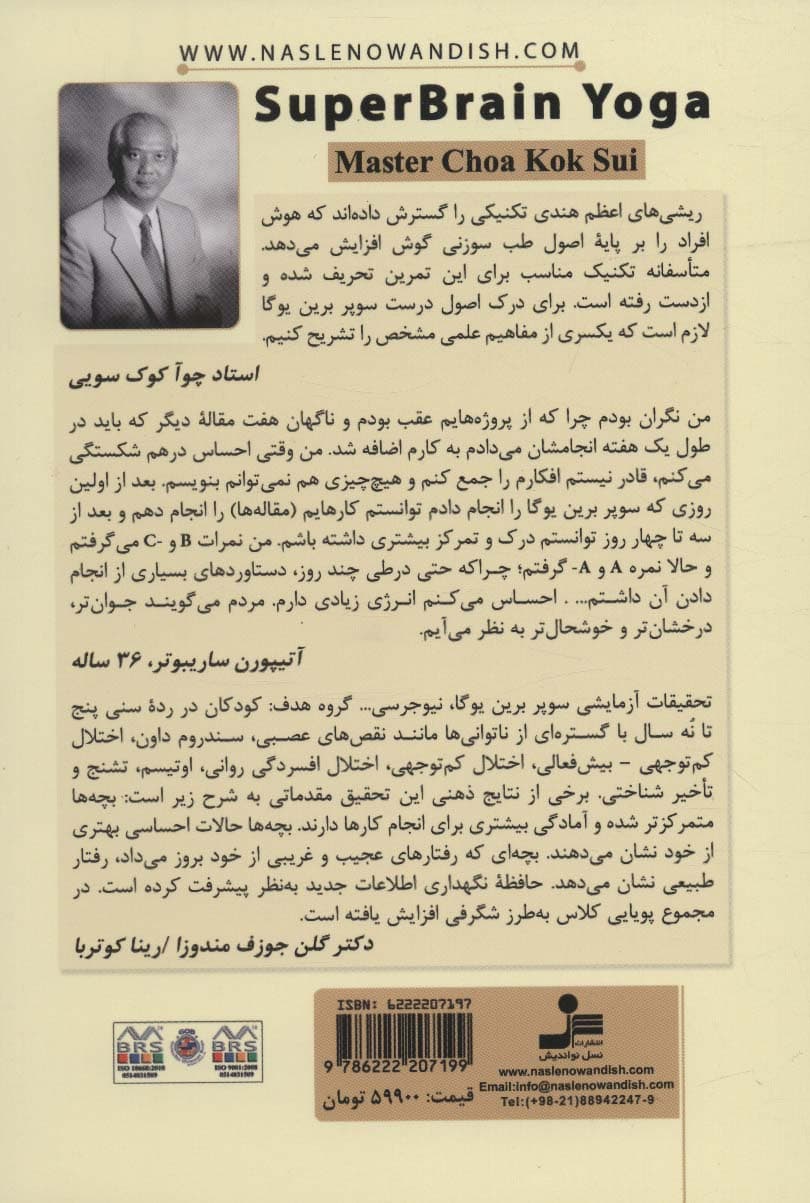 WWW.NASLENOWANDISH.COM
SuperBrain Yoga
Master Choa Kok Sui
ریشی‌های اعظم هندی تکنیکی را گسترش داده‌اند که هوش
افراد را بر پایهٔ اصول طب سوزنی گوش افزایش می‌دهد.
متأسفانه تکنیک مناسب برای این تمرین تحریف شده و
ازدست رفته است. برای درک اصول درست سوپر برین یوگا
لازم است که یکسری از مفاهیم علمی مشخص را تشریح کنیم.
استاد چوآ کوک سویی
من نگران بودم چرا که از پروژه‌هایم عقب بودم و ناگهان هفت مقالهٔ دیگر که باید در
طول یک هفته انجامشان می‌دادم به کارم اضافه شد. من وقتی احساس درهم شکستگی
می‌کنم، قادر نیستم افکارم را جمع کنم و هیچ‌چیزی هم نمی‌توانم بنویسم. بعد از اولین
روزی که سوپر برین یوگا را انجام دادم توانستم کارهایم (مقاله‌ها) را انجام دهم و بعد از
سه تا چهار روز توانستم درک و تمرکز بیشتری داشته باشم. من نمرات B و -C می‌گرفتم
و حالا نمره A و A- گرفتم؛ چراکه حتی درطی چند روز، دستاوردهای بسیاری از انجام
دادن آن داشتم... . احساس می‌کنم انرژی زیادی دارم. مردم می‌گویند جوان‌تر،
درخشان‌تر و خوشحال‌تر به نظر می‌آیم.
آتیپورن ساریبوتر، ۳۶ ساله
تحقیقات آزمایشی سوپر برین یوگا، نیوجرسی... گروه هدف: کودکان در ردهٔ سنی پنج
تا نُه سال با گستره‌ای از ناتوانی‌ها مانند نقص‌های عصبی، سندروم داون، اختلال
کم‌توجهی – بیش‌فعالی، اختلال کم‌توجهی، اختلال افسردگی روانی، اوتیسم، تشنج و
تأخیر شناختی. برخی از نتایج ذهنی این تحقیق مقدماتی به شرح زیر است: بچه‌ها
متمرکزتر شده و آمادگی بیشتری برای انجام کارها دارند. بچه‌ها حالات احساسی بهتری
از خود نشان می‌دهند. بچه‌ای که رفتارهای عجیب و غریبی از خود بروز می‌داد، رفتار
طبیعی نشان می‌دهد. حافظهٔ نگهداری اطلاعات جدید به‌نظر پیشرفت کرده است. در
مجموع پویایی کلاس به‌طرز شگرفی افزایش یافته است.
دکتر گلن جوزف مندوزا /رینا کوتربا
BRS
ISO 10668:2010
0514031509
BRS
ISO 9001:2008
0514031509
ISBN: 6222207197
9 786222 207199
قیمت: ۵۹۹۰۰ تومان
انتشارات
نسل نواندیش
www.naslenowandish.com
Email:info@naslenowandish.com
Tel:(+98-21)88942247-9